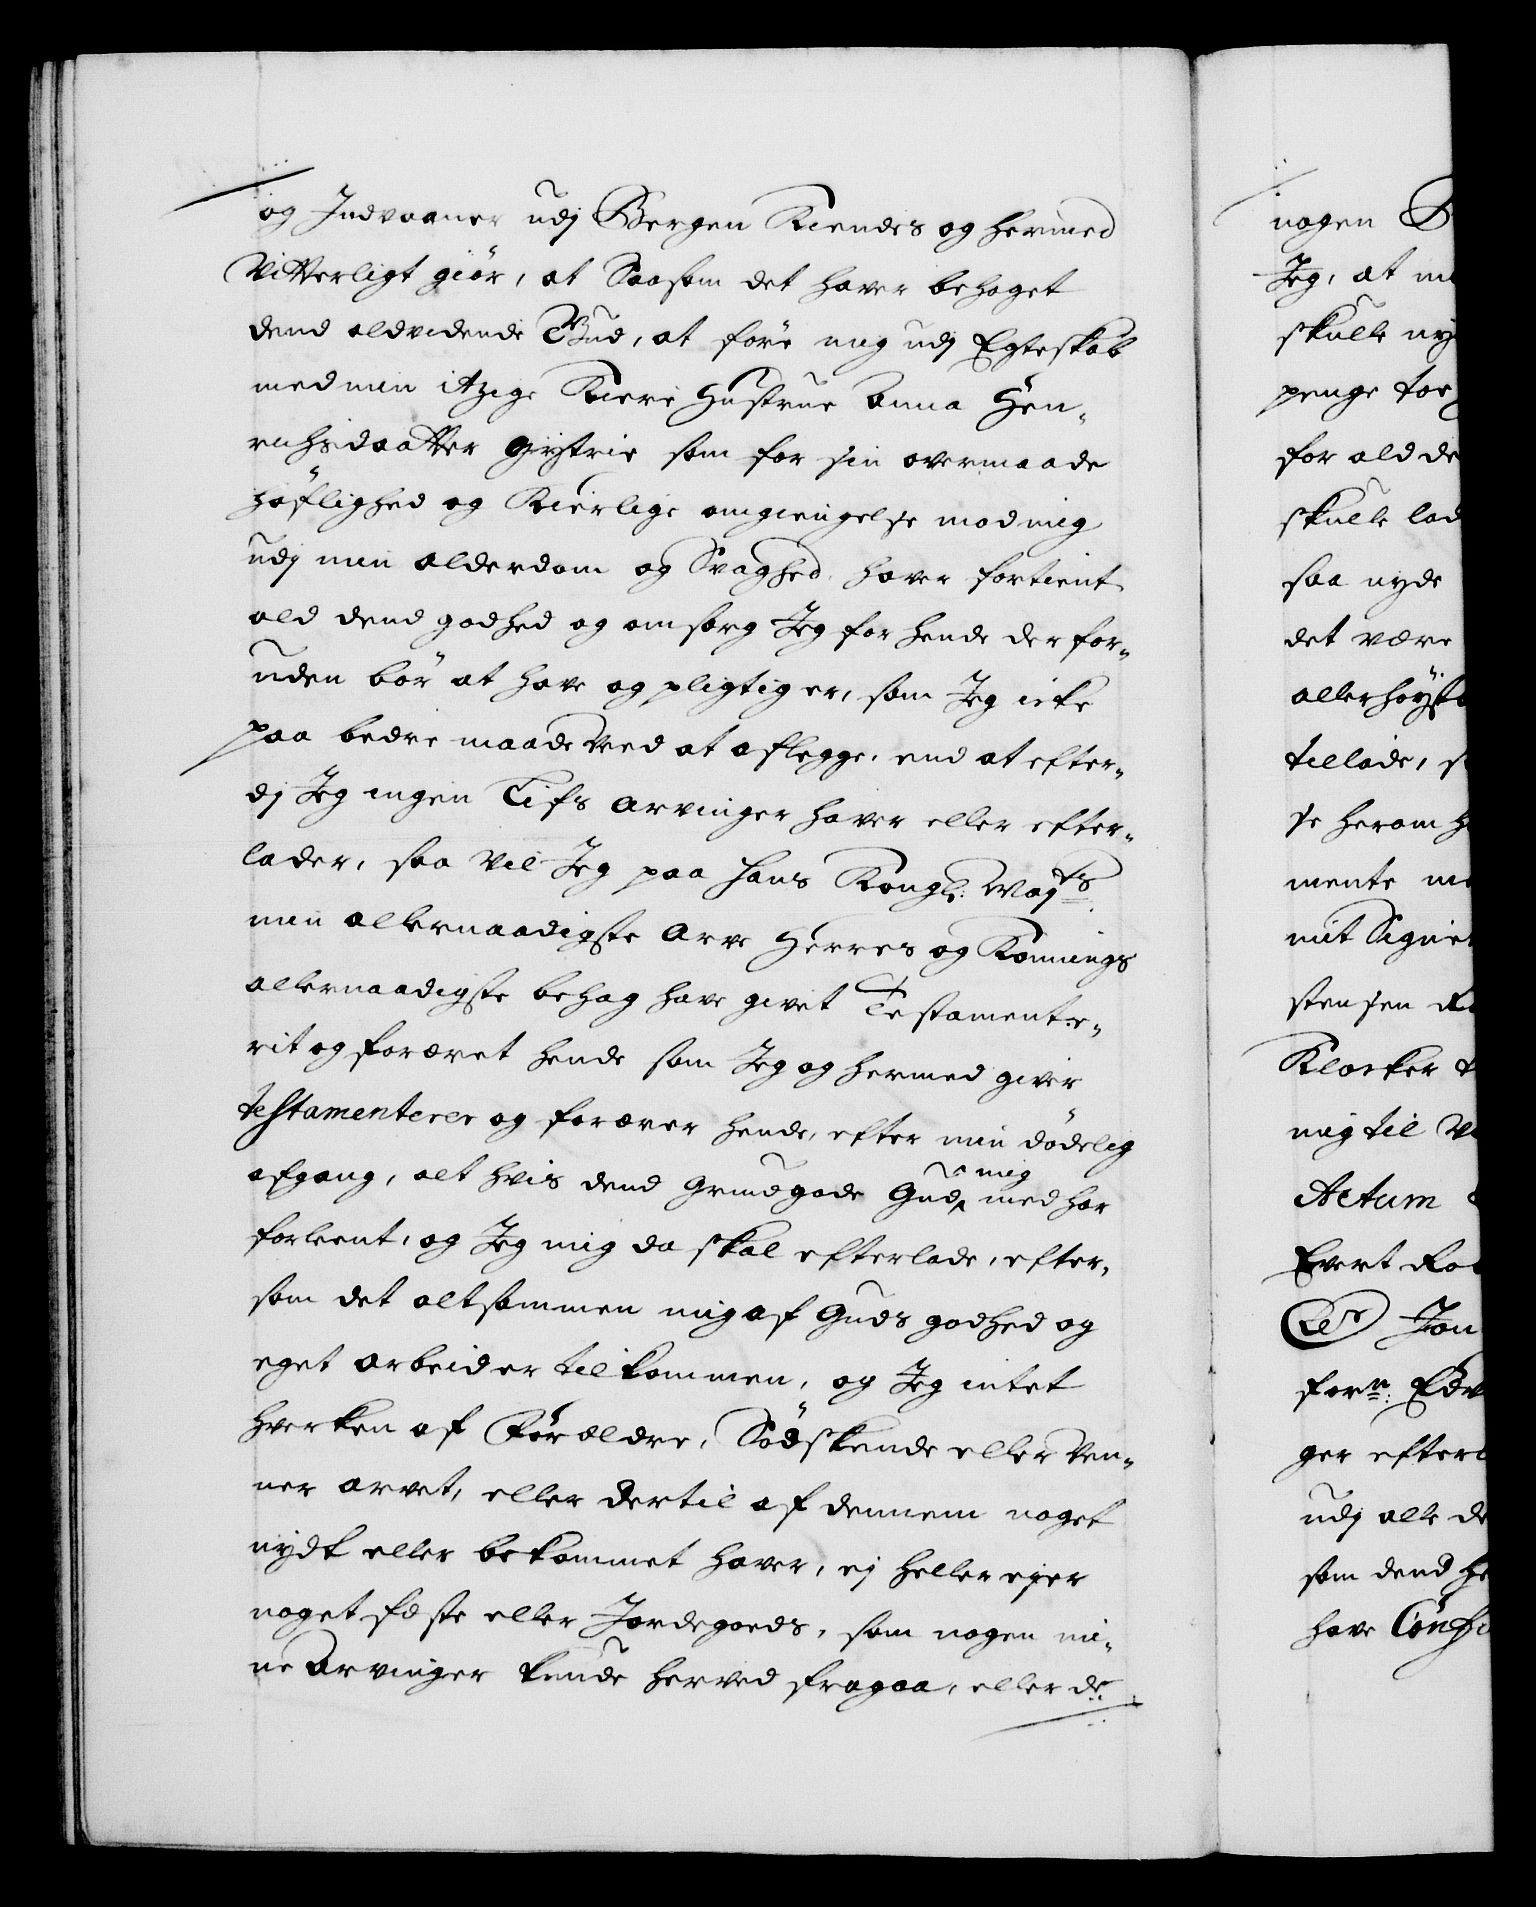 og Indvaaner udj Bergen Kiendes og hermed
Vitterligt giör, at Saasom det haver behaget
dend aldvidende Gud, at före mig udj Egteskab
med min itzige Kiere Hustrue Anna Hen-
richsdaatter Gystrie som for sin overmaade
höflighed og Kierlige omgiengelse mod mig
udj min alderdom og Svaghed, haver fortient
ald dend godhed og omsorg Jeg for hende der for-
uden bör at have og pligtig er, som Jeg icke
paa bedre maade Ved at aflegge, end at efter-
dj Jeg ingen Lifs Arvinger haver eller efter-
lader, saa Vil Jeg paa Hans Kongl: May:ts
min allernaadigste Arve Herres og Konnings
allernaadigste behag have givet Testamente-
rit og foræret hende som Jeg og hermed giver
testamenterer og forærer hende, efter min dödelig
afgang, alt hvis dend Grundgode Gud mig med har
forleent, og Jeg mig da skal efterlade, efter-
som det altsammen mig af Guds godhed og
eget arbeid er tilkommen, og Jeg intet
hverken af Forældre, Södskende eller Ven-
ner arvet, eller dertil af dennem noget
nydt eller bekommet haver, ej heller ejer
noget fæste eller Jordegoeds, som nogen mi-
ne Arvinger kunde herved fragaa, eller de
nogen
Jeg, at
skulle
penge
for ald de
skulle
saa nyde
det være
allerhöyst
tillade,
se herom
mente
mit Signet
stensen
Klocker
mig til
Actum
Evert
for:
ger efter
udj alle
som dend
have